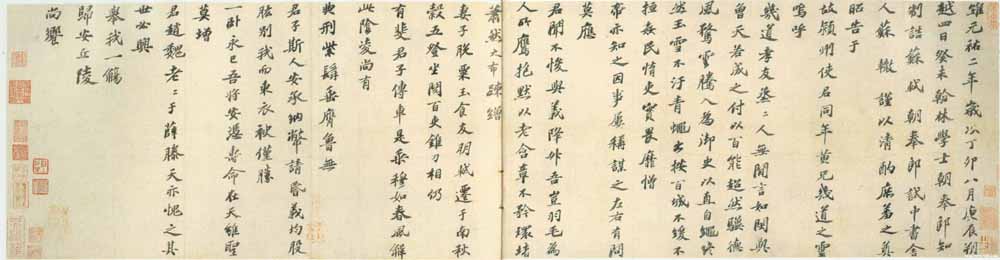 惟元祐二年歲次丁卯八月庚辰朔
越四日癸未翰林學士朝奉郎知
制誥蘇軾朝奉郎試中書舍
人蘇轍謹以清酌庶羞之奠
昭告于
故潁州使君同年黃兄幾道之靈
嗚呼
幾道孝友烝〻人無間言如閔與
曾天若成之付以百能超然驥德
風騖雲騰入為御史以直自繩終
然玉雪不汙青蠅出按百城不緩不
搄姦民惰吏實畏靡憎
帝亦知之因事屢稱謀之左右有問
莫應
君聞不悛與義降升吾豈羽毛為
人所鷹抱默以老含章不矜環堵
蕭然大布疎繒
妻子脫粟玉食友朋軾遷于南秋
穀五登坐閱百吏錐刀相仍
有斐君子傳車是乘穆如春風解
此陰凌尚有
典刑紫髯垂膺魯無
君子斯人安承納幣請昏義均股
肱別我而東衣袂僅勝
一卧永已吾將安憑壽命在天雖聖
莫增
君趙魏老〻于薛滕天亦愧之其
世必興
舉我一觴
歸安丘陵
尚饗